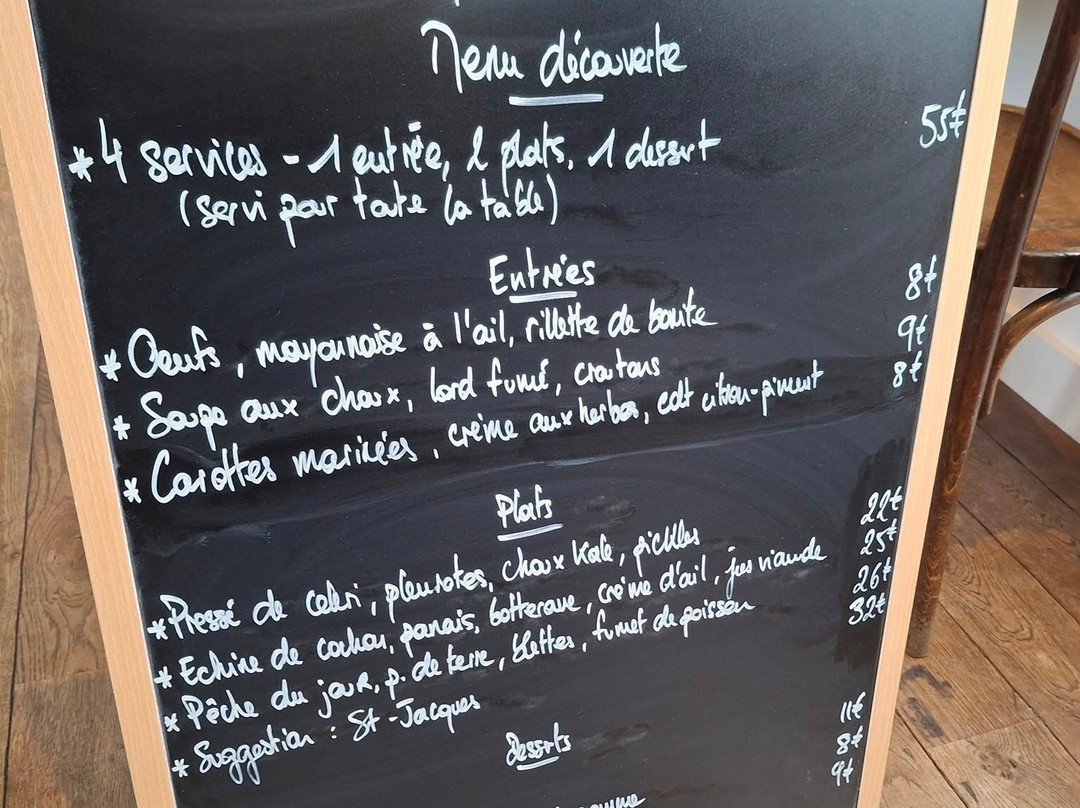 Menu découverte
* 4 services - 1 entrée, 2 plats, 1 dessert 55€
(servi pour toute la table)
Entrées
* Oeufs, mayonnaise à l'ail, rillette de bonite 8€
* Soupe aux choux, lard fumé, croutons 9€
* Carottes marinées, crème aux herbes, condt citron-piment 8€
Plats
* Pressé de celeri, pleurotes, choux kale, pickles 22€
* Echine de cochon, panais, betterave, crème d'ail, jus viande 25€
* Pêche du jour, p. de terre, blettes, fumet de poisson 26€
* Suggestion : St-Jacques 32€
Desserts
11€
8€
9€